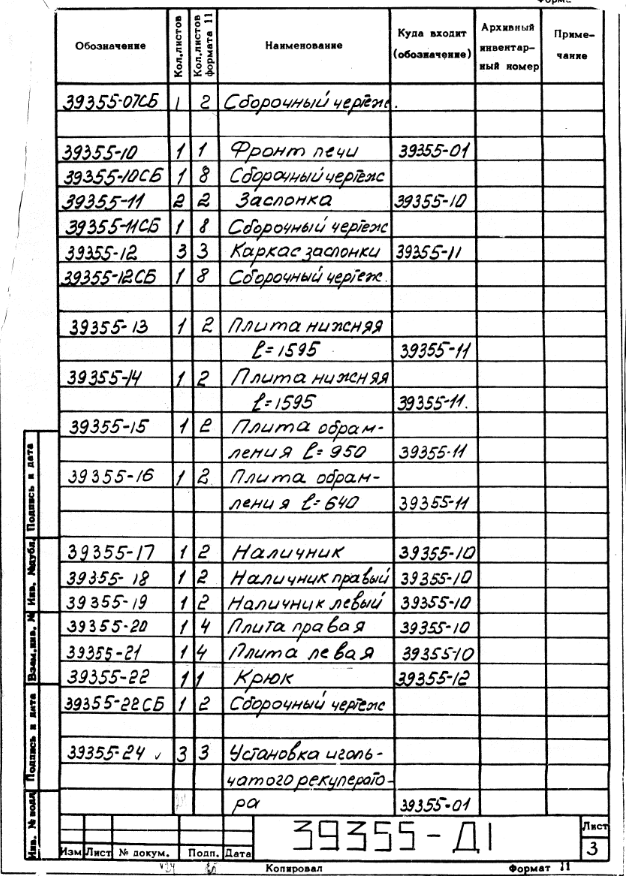 Форма
Обозначение Кол.листов Кол.листов формата 11 Наименование Куда входит (обозначение) Архивный инвентар-ный номер Приме-чание
39355-07СБ 1 2 Сборочный чертеж.
39355-10 1 1 Фронт печи 39355-01
39355-10СБ 1 8 Сборочный чертеж
39355-11 2 2 Заслонка 39355-10
39355-11СБ 1 8 Сборочный чертеж
39355-12 3 3 Каркас заслонки 39355-11
39355-12СБ 1 8 Сборочный чертеж.
39355-13 1 2 Плита нижняя
ℓ=1595 39355-11
39355-14 1 2 Плита нижняя
ℓ=1595 39355-11.
39355-15 1 2 Плита обрам-
ления ℓ=950 39355-11
39355-16 1 2 Плита обрам-
ления ℓ=640 39355-11
39355-17 1 2 Наличник 39355-10
39355-18 1 2 Наличник правый 39355-10
39355-19 1 2 Наличник левый 39355-10
39355-20 1 4 Плита правая 39355-10
39355-21 1 4 Плита левая 39355-10
39355-22 1 1 Крюк 39355-12
39355-22СБ 1 2 Сборочный чертеж
39355-24 3 3 Установка иголь-
чатого рекуперато-
ра 39355-01
Подпись и дата
Инв. №дубл.
Взам.инв. №
Подпись и дата
Инв. № подл
39355-Д1
Лист
3
Изм Лист № докум. Подп. Дата
Копировал Формат 11